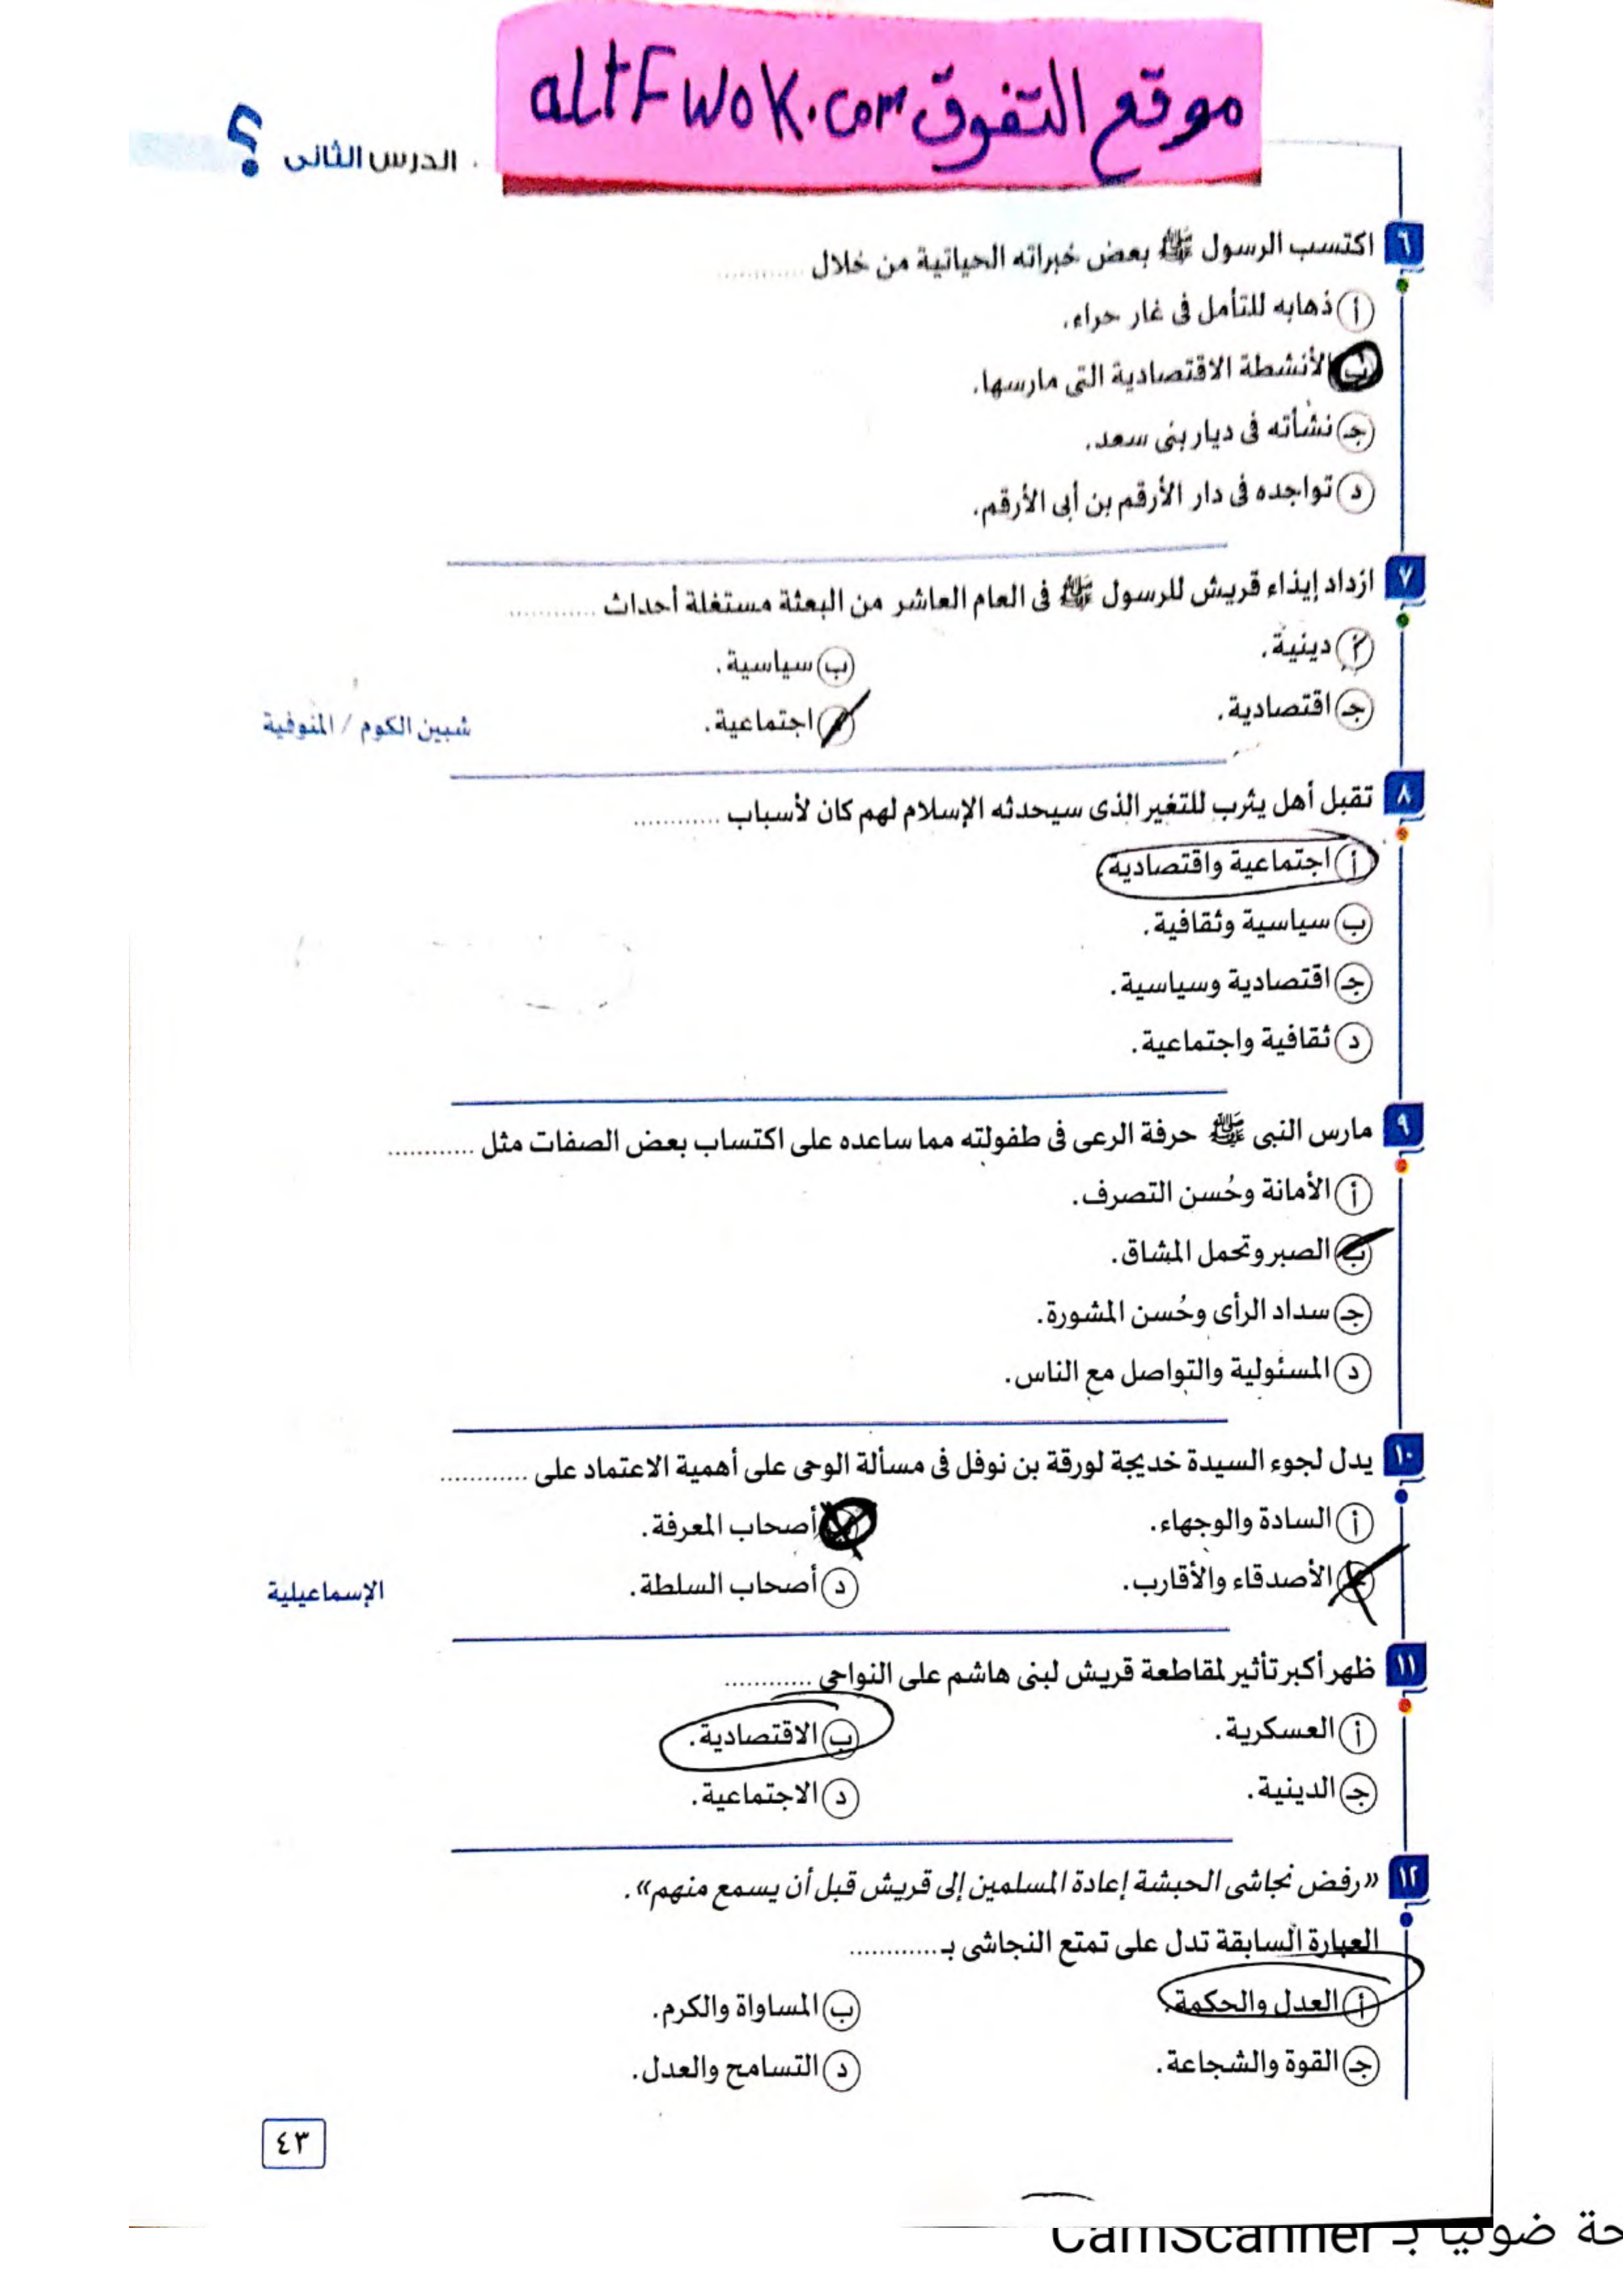 موقع التفوق altFwok.com
الدرس الثانى ؟
٦ اكتسب الرسول ﷺ بعض خبراته الحياتية من خلال ............
أ ذهابه للتأمل فى غار حراء.
ب الأنشطة الاقتصادية التى مارسها.
جـ نشأته فى ديار بنى سعد.
د تواجده فى دار الأرقم بن أبى الأرقم.
٧ ازداد إيذاء قريش للرسول ﷺ فى العام العاشر من البعثة مستغلة أحداث ............
أ دينية.
ب سياسية.
جـ اقتصادية.
د اجتماعية.
شبين الكوم / المنوفية
٨ تقبل أهل يثرب للتغير الذى سيحدثه الإسلام لهم كان لأسباب ............
أ اجتماعية واقتصادية.
ب سياسية وثقافية.
جـ اقتصادية وسياسية.
د ثقافية واجتماعية.
٩ مارس النبى ﷺ حرفة الرعى فى طفولته مما ساعده على اكتساب بعض الصفات مثل ............
أ الأمانة وحُسن التصرف.
ب الصبر وتحمل المشاق.
جـ سداد الرأى وحُسن المشورة.
د المسئولية والتواصل مع الناس.
١٠ يدل لجوء السيدة خديجة لورقة بن نوفل فى مسألة الوحى على أهمية الاعتماد على ............
أ السادة والوجهاء.
ب أصحاب المعرفة.
جـ الأصدقاء والأقارب.
د أصحاب السلطة.
الإسماعيلية
١١ ظهر أكبر تأثير لمقاطعة قريش لبنى هاشم على النواحى ............
أ العسكرية.
ب الاقتصادية.
جـ الدينية.
د الاجتماعية.
١٢ «رفض نجاشى الحبشة إعادة المسلمين إلى قريش قبل أن يسمع منهم».
العبارة السابقة تدل على تمتع النجاشى بـ ............
أ العدل والحكمة.
ب المساواة والكرم.
جـ القوة والشجاعة.
د التسامح والعدل.
٤٣
حة ضوئيا بـ CamScanner